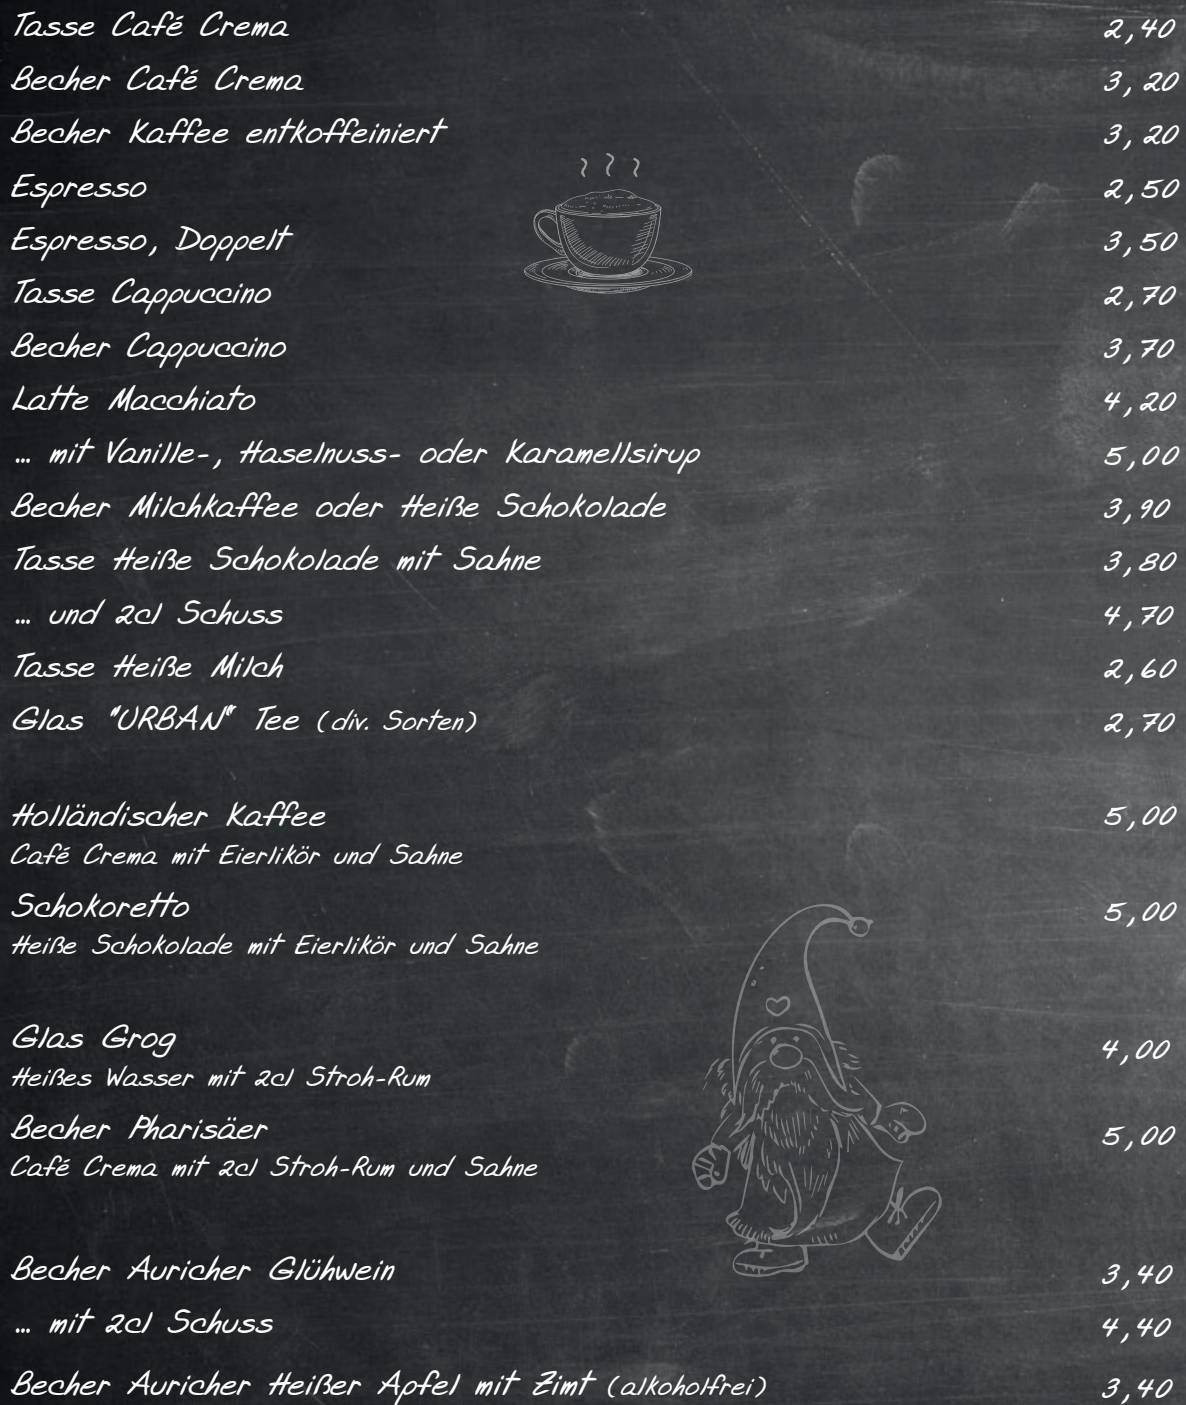 Tasse Café Crema 2,40
Becher Café Crema 3,20
Becher Kaffee entkoffeiniert 3,20
Espresso 2,50
Espresso, Doppelt 3,50
Tasse Cappuccino 2,70
Becher Cappuccino 3,70
Latte Macchiato 4,20
... mit Vanille-, Haselnuss- oder Karamellsirup 5,00
Becher Milchkaffee oder Heiße Schokolade 3,90
Tasse Heiße Schokolade mit Sahne 3,80
... und 2cl Schuss 4,70
Tasse Heiße Milch 2,60
Glas "URBAN" Tee (div. Sorten) 2,70
Holländischer Kaffee 5,00
Café Crema mit Eierlikör und Sahne
Schokoretto 5,00
Heiße Schokolade mit Eierlikör und Sahne
Glas Grog 4,00
Heißes Wasser mit 2cl Stroh-Rum
Becher Pharisäer 5,00
Café Crema mit 2cl Stroh-Rum und Sahne
Becher Auricher Glühwein 3,40
... mit 2cl Schuss 4,40
Becher Auricher Heißer Apfel mit Zimt (alkoholfrei) 3,40